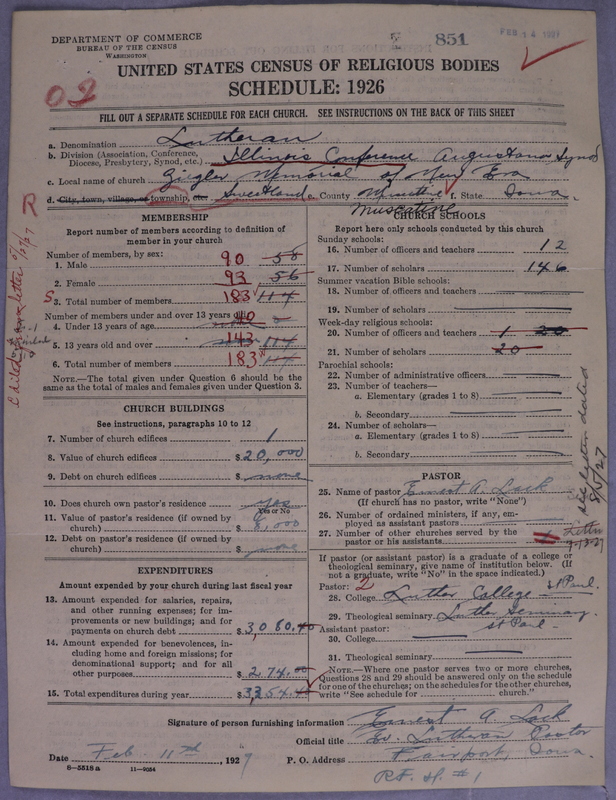 DEPARTMENT OF COMMERCE
BUREAU OF THE CENSUS
WASHINGTON
851
FEB 14 1927
UNITED STATES CENSUS OF RELIGIOUS BODIES
SCHEDULE: 1926
02
FILL OUT A SEPARATE SCHEDULE FOR EACH CHURCH. SEE INSTRUCTIONS ON THE BACK OF THIS SHEET
a. Denomination Lutheran
b. Division (Association, Conference, Diocese, Presbytery, Synod, etc.) Illinois Conference Augustana Synod
c. Local name of church Zigler Memorial of New Era
d. City, town, village, or township, etc. Sweetland e. County Muscatine f. State Iowa.
Muscatine
R
MEMBERSHIP
Report number of members according to definition of
member in your church
Number of members, by sex:
1. Male 90 58
2. Female 93 56
S 3. Total number of members 183 114
Number of members under and over 13 years old:
4. Under 13 years of age 40 none
5. 13 years old and over 143 114
6. Total number of members 183 114
NOTE.—The total given under Question 6 should be the
same as the total of males and females given under Question 3.
CHURCH BUILDINGS
See instructions, paragraphs 10 to 12
7. Number of church edifices 1
8. Value of church edifices $20,000
9. Debt on church edifices $ none
10. Does church own pastor's residence yes
Yes or No
11. Value of pastor's residence (if owned by
church) $ 6,000
12. Debt on pastor's residence (if owned by
church) $ none
EXPENDITURES
Amount expended by your church during last fiscal year
13. Amount expended for salaries, repairs,
and other running expenses; for im-
provements or new buildings; and for
payments on church debt $3,080.40
14. Amount expended for benevolences, in-
cluding home and foreign missions; for
denominational support; and for all
other purposes $ 274.00
15. Total expenditures during year $3,354.40
CHURCH SCHOOLS
Report here only schools conducted by this church
Sunday schools:
16. Number of officers and teachers 12
17. Number of scholars 146
Summer vacation Bible schools:
18. Number of officers and teachers
19. Number of scholars
Week-day religious schools:
20. Number of officers and teachers 1 20
21. Number of scholars 20
Parochial schools:
22. Number of administrative officers
23. Number of teachers—
a. Elementary (grades 1 to 8)
b. Secondary
24. Number of scholars—
a. Elementary (grades 1 to 8)
b. Secondary
See letter dated 8/5/27
PASTOR
25. Name of pastor Ernest A. Lack
(If church has no pastor, write "None")
26. Number of ordained ministers, if any, em-
ployed as assistant pastors
27. Number of other churches served by the
pastor or his assistants 1
Letter
If pastor (or assistant pastor) is a graduate of a college or
theological seminary, give name of institution below. (If
not a graduate, write "No" in the space indicated.)
Pastor: 2 St Paul.
28. College Luther College
29. Theological seminary Luther Seminary.
Assistant pastor: St Paul
30. College
31. Theological seminary
NOTE.—Where one pastor serves two or more churches,
Questions 28 and 29 should be answered only on the schedule
for one of the churches; on the schedules for the other churches,
write "See schedule for church."
Signature of person furnishing information Ernest A Lack
Official title Ev. Lutheran Pastor
Date Feb. 11th, 1927 P. O. Address Fairport, Iowa.
R.F.D. #1
8—5518a 11—9054